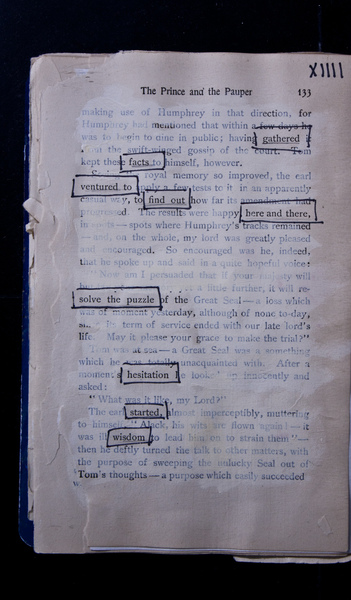 XIIII
The Prince and the Pauper 133
making use of Humphrey in that direction, for
Humphrey had mentioned that within a few days he
was to begin to dine in public; having gathered it
from the swift-winged gossip of the court. Tom
kept these facts to himself, however.
royal memory so improved, the earl
ventured to apply a few tests to it in an apparently
casual way, to find out how far its amendment had
progressed. The results were happy, here and there,
in spots — spots where Humphrey's tracks remained
— and, on the whole, my lord was greatly pleased
and encouraged. So encouraged was he, indeed,
that he spoke up and said in a quite hopeful voice:
Now am I persuaded that if your majesty will
but a little further, it will re-
solve the puzzle of the Great Seal — a loss which
was of moment yesterday, although of none to-day,
since its term of service ended with our late lord's
life. May it please your grace to make the trial?"
Tom was at sea — a Great Seal was a something
which he was totally unacquainted with. After a
moment's hesitation he looked up innocently and
asked:
"What was it like, my Lord?"
The earl started, almost imperceptibly, muttering
to himself, "Alack, his wits are flown again! — it
was ill wisdom to lead him on to strain them" —
then he deftly turned the talk to other matters, with
the purpose of sweeping the unlucky Seal out of
Tom's thoughts — a purpose which easily succeeded